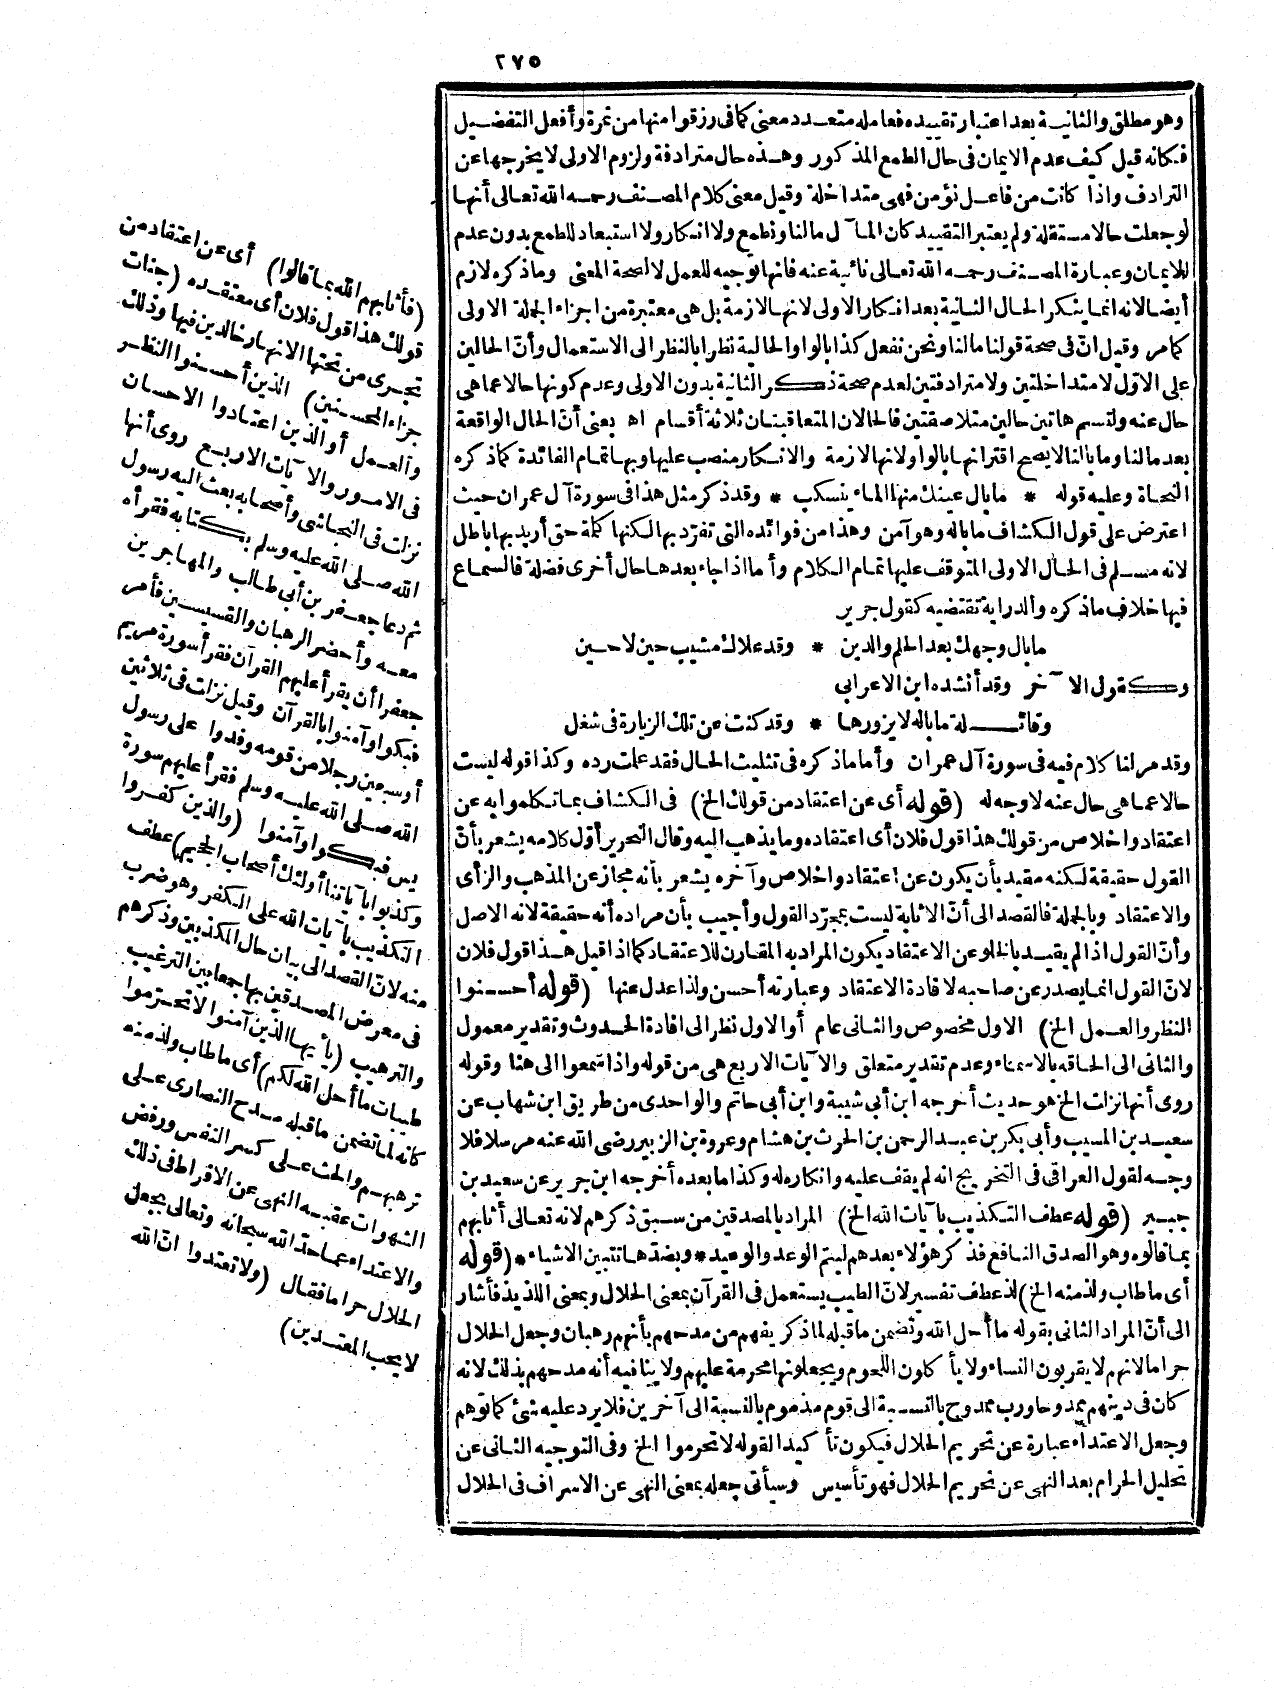 ٢٧٥
وهو مطلق والثانية بعد اعتبار تقييده فعامله متعدد معنى كما في رزقوا منها من ثمرة وأفعل التفضيل
فكانه قيل كيف عدم الايمان في حال الطمع المذكور وهذه حال مترادفة ولزوم الاولى لا يخرجها عن
الترادف واذا كانت من فاعل نؤمن فهي متداخلة وقيل معنى كلام المصنف رحمه الله تعالى أنها
لو جعلت حالا مستقلة ولم يعتبر التقييد كان المآل مالنا ونطمع ولا انكار ولا استبعاد للطمع بدون عدم
للايمان وعبارة المصنف رحمه الله تعالى نائية عنه فانها توجيه للعمل لا لصحة المعنى وما ذكره لازم
أيضا لانه انما ينكر الحال الثانية بعد انكار الاولى لانها لازمة بل هي معتبرة من اجزاء الجملة الاولى
كما مر وقيل انّ في صحة قولنا مالنا ونحن نفعل كذا بالواو الحالية نظرا بالنظر الى الاستعمال وأنّ الحالين
على الاوّل لا متداخلتين ولا مترادفتين لعدم صحة ذكر الثانية بدون الاولى وعدم كونها حالا عما هي
حال عنه ولنسم هاتين حالين متلاصقتين فالحالان المتعاقبتان ثلاثة أقسام اه يعني أنّ الحال الواقعة
بعد مالنا وما بالنا لا يصح اقترانها بالواو لانها لازمة والانكار منصب عليها وبها تمام الفائدة كما ذكره
النحاة وعليه قوله * ما بال عينك منها الماء ينسكب * وقد ذكر مثل هذا في سورة آل عمران حيث
اعترض على قول الكشاف ما باله وهو آمن وهذا من فوائده التي تفرّد بها لكنها كلمة حق أريد بها باطل
لانه مسلم في الحال الاولى المتوقف عليها تمام الكلام وأما اذا جاء بعدها حال أخرى فضلة فالسماع
فيها خلاف ما ذكره والدراية تقتضيه كقول جرير
ما بال وجهك بعد الحلم والدين * وقد علاك مشيب حين لا حين
وكقول الآخر وقد أنشده ابن الاعرابي
وقائلة ما باله لا يزورها * وقد كنت عن تلك الزيارة في شغل
وقد مر لنا كلام فيه في سورة آل عمران وأما ما ذكره في تثليث الحال فقد علمت رده وكذا قوله ليست
حالا عما هي حال عنه لا وجه له (قوله أي عن اعتقاد من قولك الخ) في الكشاف بما تكلموا به عن
اعتقاد واخلاص من قولك هذا قول فلان أي اعتقاده وما يذهب اليه وقال النحرير أوّل كلامه يشعر بأنّ
القول حقيقة لكنه مقيد بأن يكون عن اعتقاد واخلاص وآخره يشعر بأنه مجاز عن المذهب والرأى
والاعتقاد وبالجملة فالقصد الى أنّ الاثابة ليست بمجرّد القول وأجيب بأن مراده أنه حقيقة لانه الاصل
وأنّ القول اذا لم يقيد بالخلو عن الاعتقاد يكون المراد به المقارن للاعتقاد كما اذا قيل هذا قول فلان
لانّ القول انما يصدر عن صاحبه لا فادة الاعتقاد وعبارته أحسن ولذا عدل عنها (قوله أحسنوا
النظر والعمل الخ) الاول مخصوص والثاني عام أو الاول نظر الى افادة الحدوث وتقدير معمول
والثاني الى الحاقه بالاسماء وعدم تقدير متعلق والآيات الاربع هي من قوله واذا سمعوا الى هنا وقوله
روى أنها نزلت الخ هو حديث أخرجه ابن أبي شيبة وابن أبي حاتم والواحدى من طريق ابن شهاب عن
سعيد بن المسيب وأبي بكر بن عبد الرحمن بن الحرث بن هشام وعروة بن الزبير رضى الله عنه مرسلا فلا
وجه لقول العراقي في التخريج انه لم يقف عليه وانكاره له وكذا ما بعده أخرجه ابن جرير عن سعيد بن
جبير (قوله عطف التكذيب بآيات الله الخ) المراد بالمصدقين من سبق ذكرهم لانه تعالى أثابهم
بما قالوه وهو الصدق النافع فذكر هؤلاء بعدهم ليتم الوعد والوعيد * وبضدّها تتبين الاشياء * (قوله
أي ما طاب ولذ منه الخ) لذ عطف تفسير لانّ الطيب يستعمل في القرآن بمعنى الحلال وبمعنى اللذيذ فأشار
الى أنّ المراد الثاني بقوله ما أحل الله وتضمن ما قبله لما ذكر يفهم من مدحهم بأنهم رهبان وجعل الحلال
حراما لانهم لا يقربون النساء ولا يأكلون اللحوم ويجعلونها محرمة عليهم ولا ينافيه أنه مدحهم بذلك لانه
كان في دينهم ممدوحا ورب ممدوح بالنسبة الى قوم مذموم بالنسبة الى آخرين فلا يرد عليه شئ كما توهم
وجعل الاعتداء عبارة عن تحريم الحلال فيكون تأكيدا لقوله لا تحرموا الخ وفي التوجيه الثاني عن
تحليل الحرام بعد النهى عن تحريم الحلال فهو تأسيس وسيأتي جعله بمعنى النهى عن الاسراف في الحلال
(فأثابهم الله بما قالوا) أي عن اعتقاد من
قولك هذا قول فلان أي معتقده (جنات
تجرى من تحتها الانهار خالدين فيها وذلك
جزاء المحسنين) الذين أحسنوا النظر
والعمل أو الذين اعتادوا الاحسان
في الامور والآيات الاربع روى أنها
نزلت في النجاشى وأصحابه بعث اليه رسول
الله صلى الله عليه وسلم بكتابه فقرأه
ثم دعا جعفر بن أبي طالب والمهاجرين
معه وأحضر الرهبان والقسيسين فأمر
جعفرا أن يقرأ عليهم القرآن فقرأ سورة مريم
فبكوا وآمنوا بالقرآن وقيل نزلت في ثلاثين
أو سبعين رجلا من قومه وفدوا على رسول
الله صلى الله عليه وسلم فقرأ عليهم سورة
يس فبكوا وآمنوا (والذين كفروا
وكذبوا بآياتنا أولئك أصحاب الجحيم) عطف
التكذيب بآيات الله على الكفر وهو ضرب
منه لانّ القصد الى بيان حال المكذبين وذكرهم
في معرض المصدقين بها جمعا بين الترغيب
والترهيب (يأيها الذين آمنوا لا تحرموا
طيبات ما أحل الله لكم) أي ما طاب ولذ منه
كانه لما تضمن ما قبله مدح النصارى على
ترهبهم والحث على كسر النفس ورفض
الشهوات عقبه النهى عن الافراط في ذلك
والاعتداء عما حدّ الله سبحانه وتعالى بجعل
الحلال حراما فقال (ولا تعتدوا انّ الله
لا يحب المعتدين)